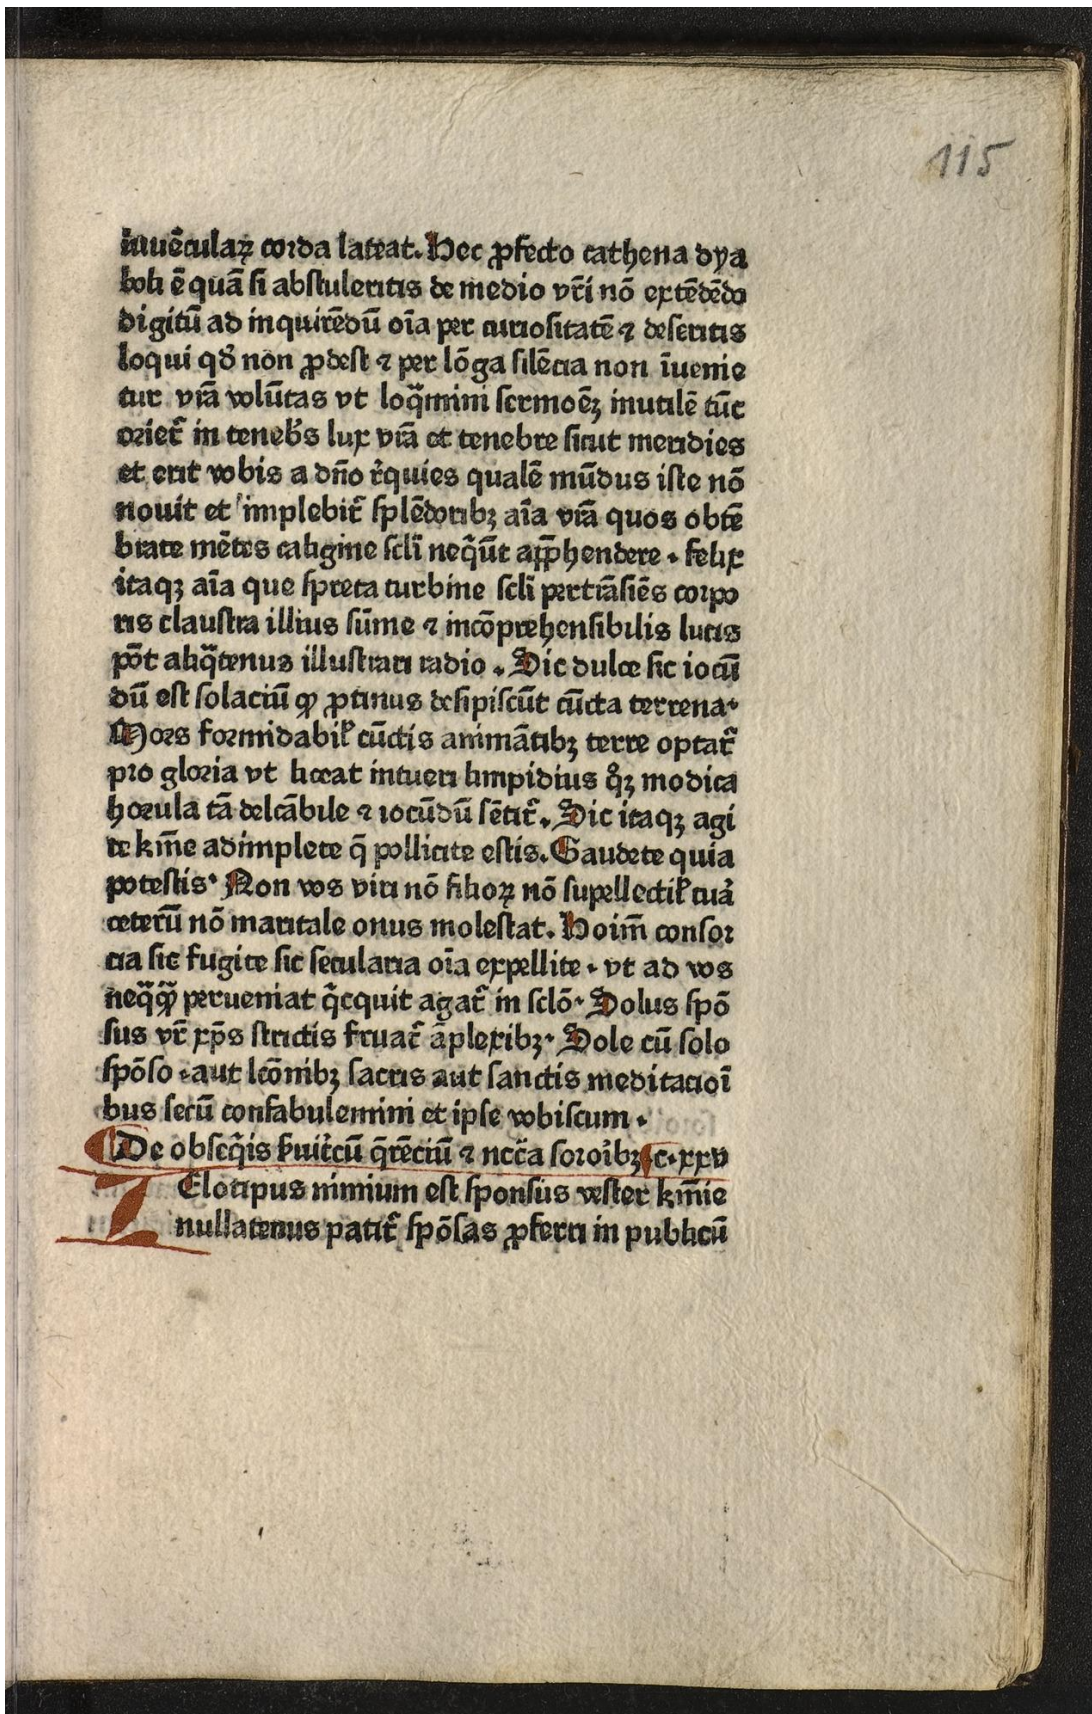 115
iuuēculaꝝ corda lateat. Hec ꝓfecto cathena dya
boli ē quā si abstuleritis de medio vr̄i nō extēdēdo
digitū ad inquirēdū oīa per curiositatē ⁊ deseritis
loqui qd̕ non ꝓdest ⁊ per lōga silēcia non īuenie
tur vr̄a volūtas vt loq̄mini sermoēꝫ inutilē tūc
orietʳ in tenebʳs lux vr̄a et tenebre sicut meridies
et erit vobis a dn̄o rͤquies qualē mūdus iste nō
nouit et implebitʳ splēdoribꝫ aīa vr̄a quos obtē
brate mētes caligine scl̄i neq̄ūt apꝓhendere . felix
itaqꝫ aīa que spreta turbine scl̄i pertrāsiēs corpo
ris claustra illius sūme ⁊ incōprehensibilis lucis
pōt aliq̄tenus illustrari radio . Sic dulce sic iocū
dū est solaciū ꝙ ꝓtinus desipiscūt cūcta terrena.
Mors formidabilʼ cūctis animātibꝫ terre optatʳ
pro gloria vt liceat intueri limpidius qͦꝫ modica
horula tā delcābile ⁊ iocūdū sētitʳ. Sic itaqꝫ agi
te km̄e adimplete q̄ pollicite estis. Gaudete quia
potestis. Non vos viri nō filioꝝ nō supellectilʼ curͣ
ceterū nō maritale onus molestat. Hoim̄ consor
cia sic fugite sic secularia oīa expellite . vt ad vos
neq̄ꝙ̄ perueniat q̄cquit agatʳ in sclō. Solus spō
sus vr̄ xp̄s strictis fruatʳ āplexibꝫ. Sole cū solo
spōso . aut lcōnibꝫ sacris aut sanctis meditacioī
bus secū confabulemini et ipse vobiscum .
De obseq̄is ẜuitcū q̄rēciū ⁊ ncc̄a soroͥbꝫ c. xxv
ZElotipus nimium est sponsus vester km̄ie
nullatenus patitʳ spōsas ꝓferri in publicū